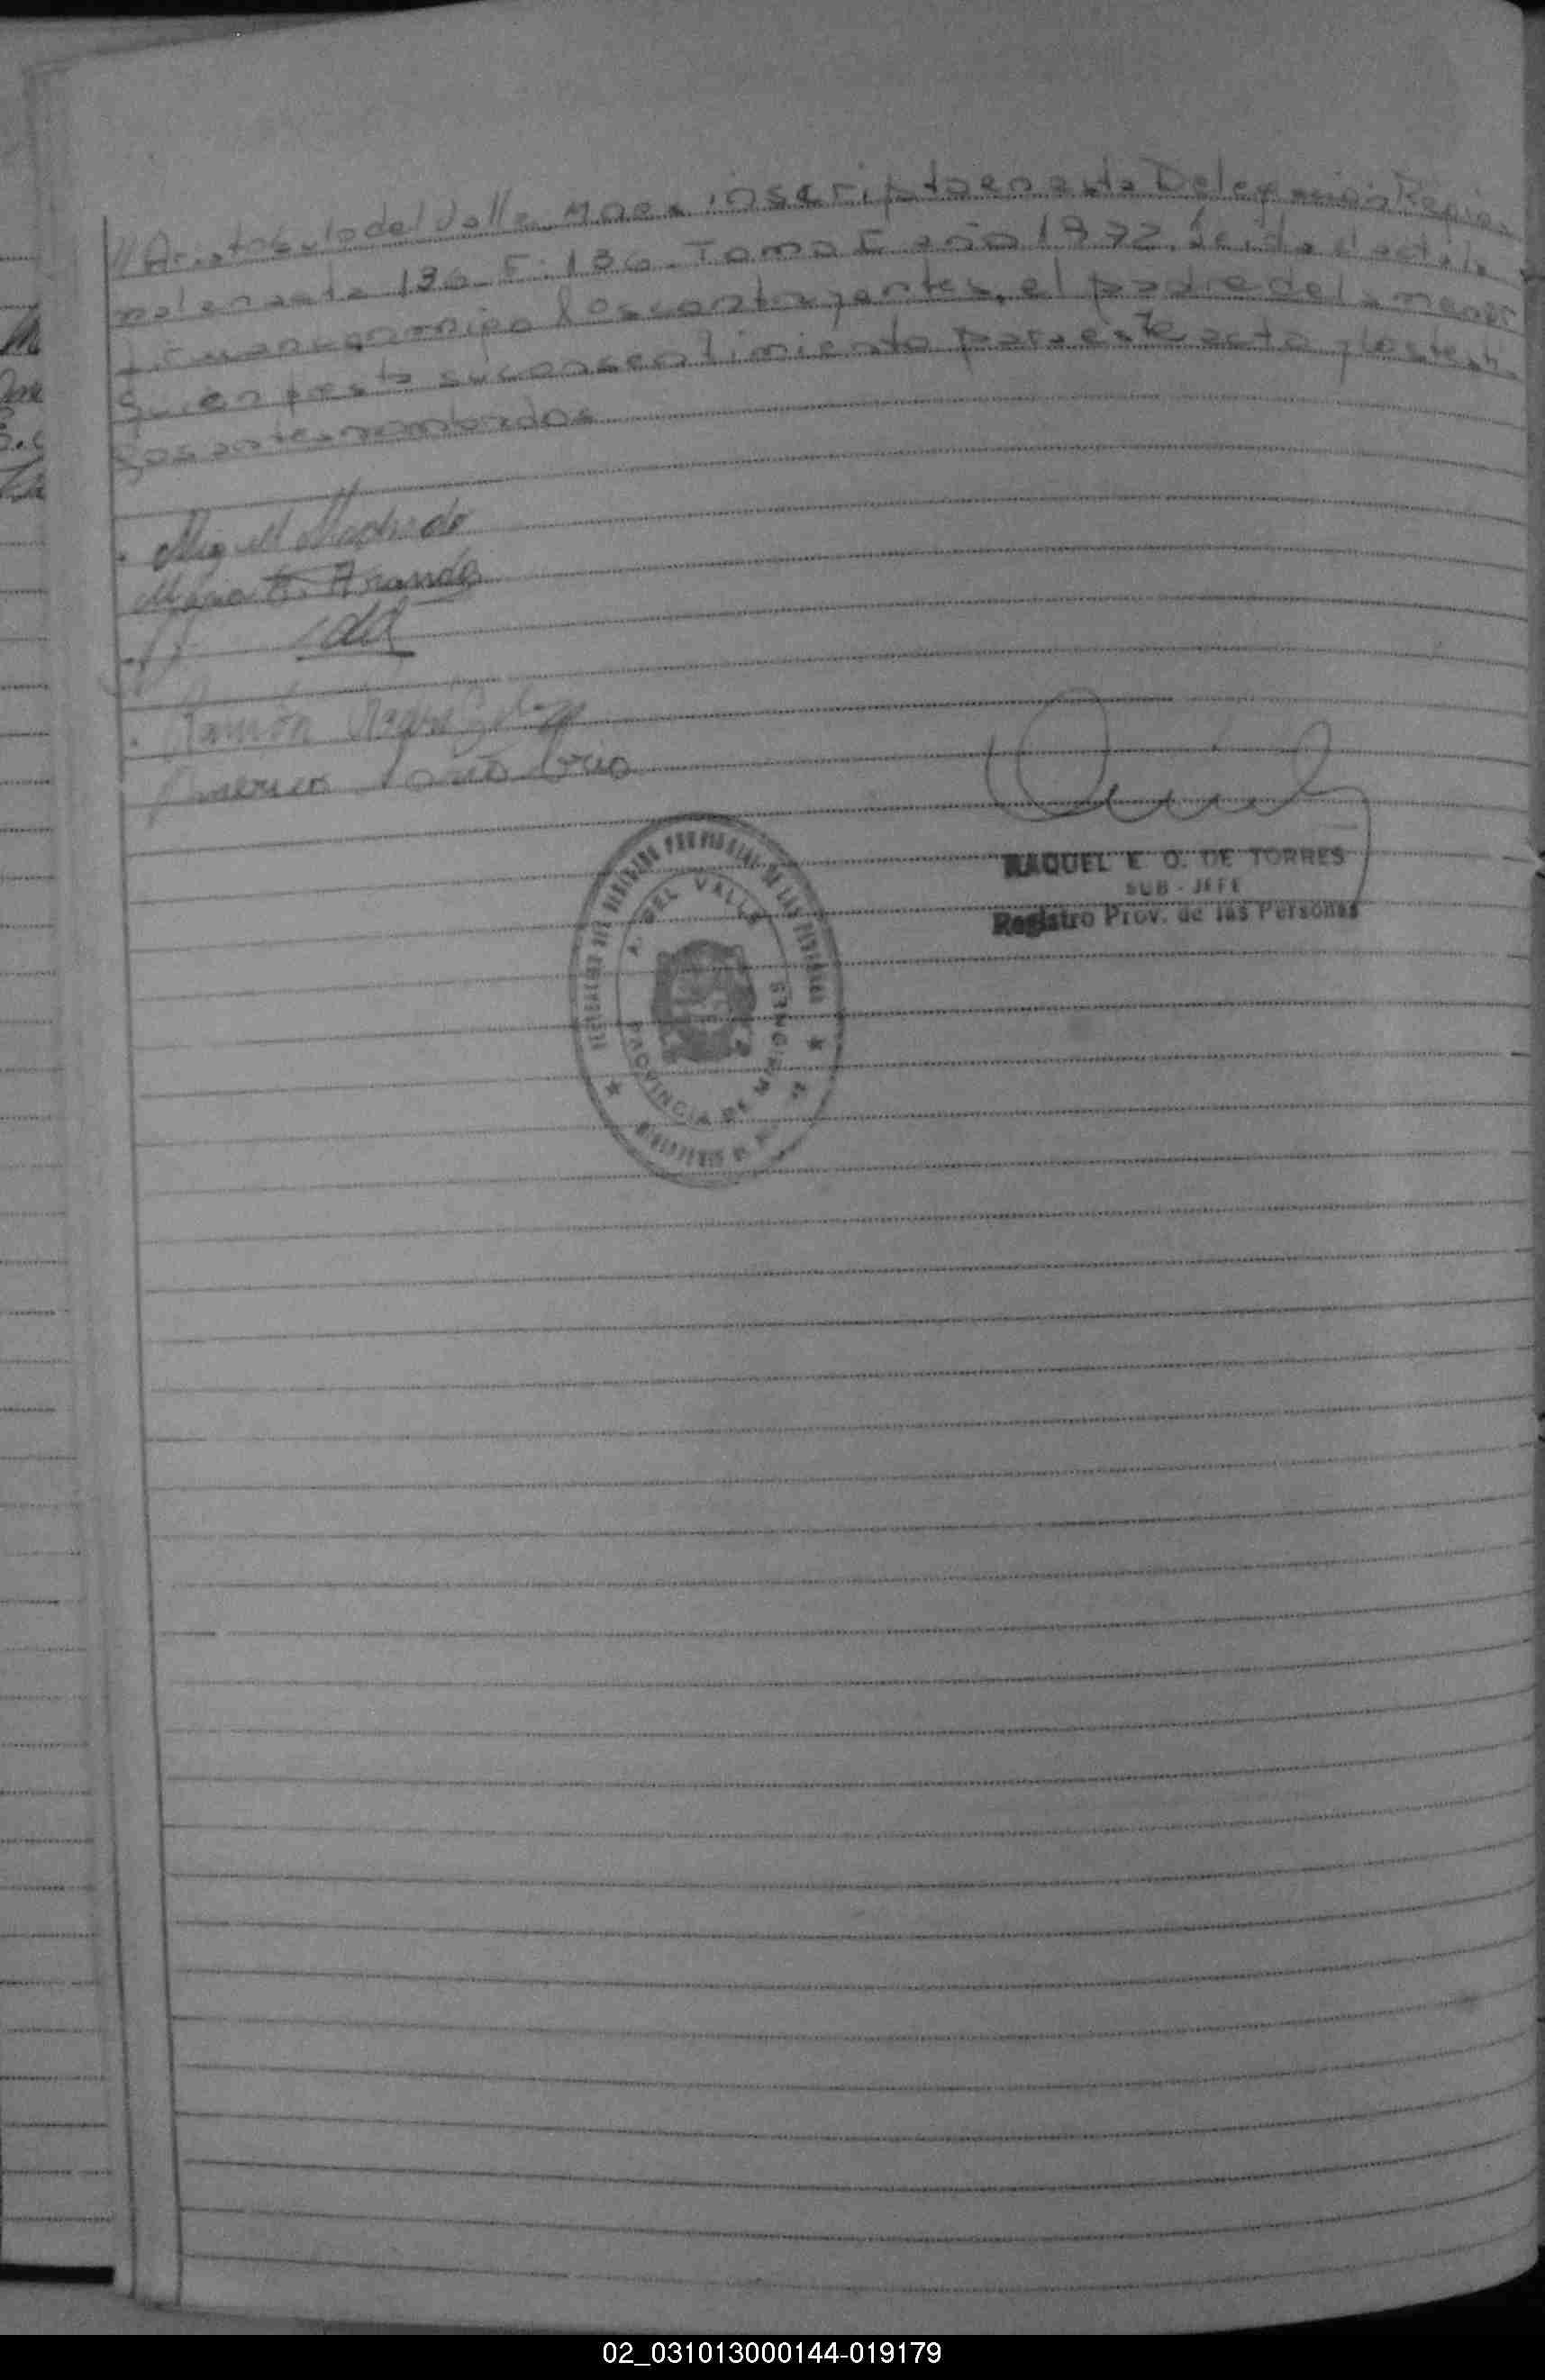 // Aristóbulo del Valle Mnes inscripto en esta Delegación Regio
nal en acta 136 F: 136 Tomo I año 1972. Leída el acta la
firman conmigo los contrayentes, el padre de la menor
quien presta su consentimiento para este acto y los testi
gos antes nombrados
Miguel Machado
Maria E. Aranda
Ramón
Americo
RAQUEL E O. DE TORRES
SUB - JEFE
Registro Prov. de las Personas
REGISTRO PROVINCIAL DE LAS PERSONAS
A. DEL VALLE
PROVINCIA DE MISIONES
02_031013000144-019179